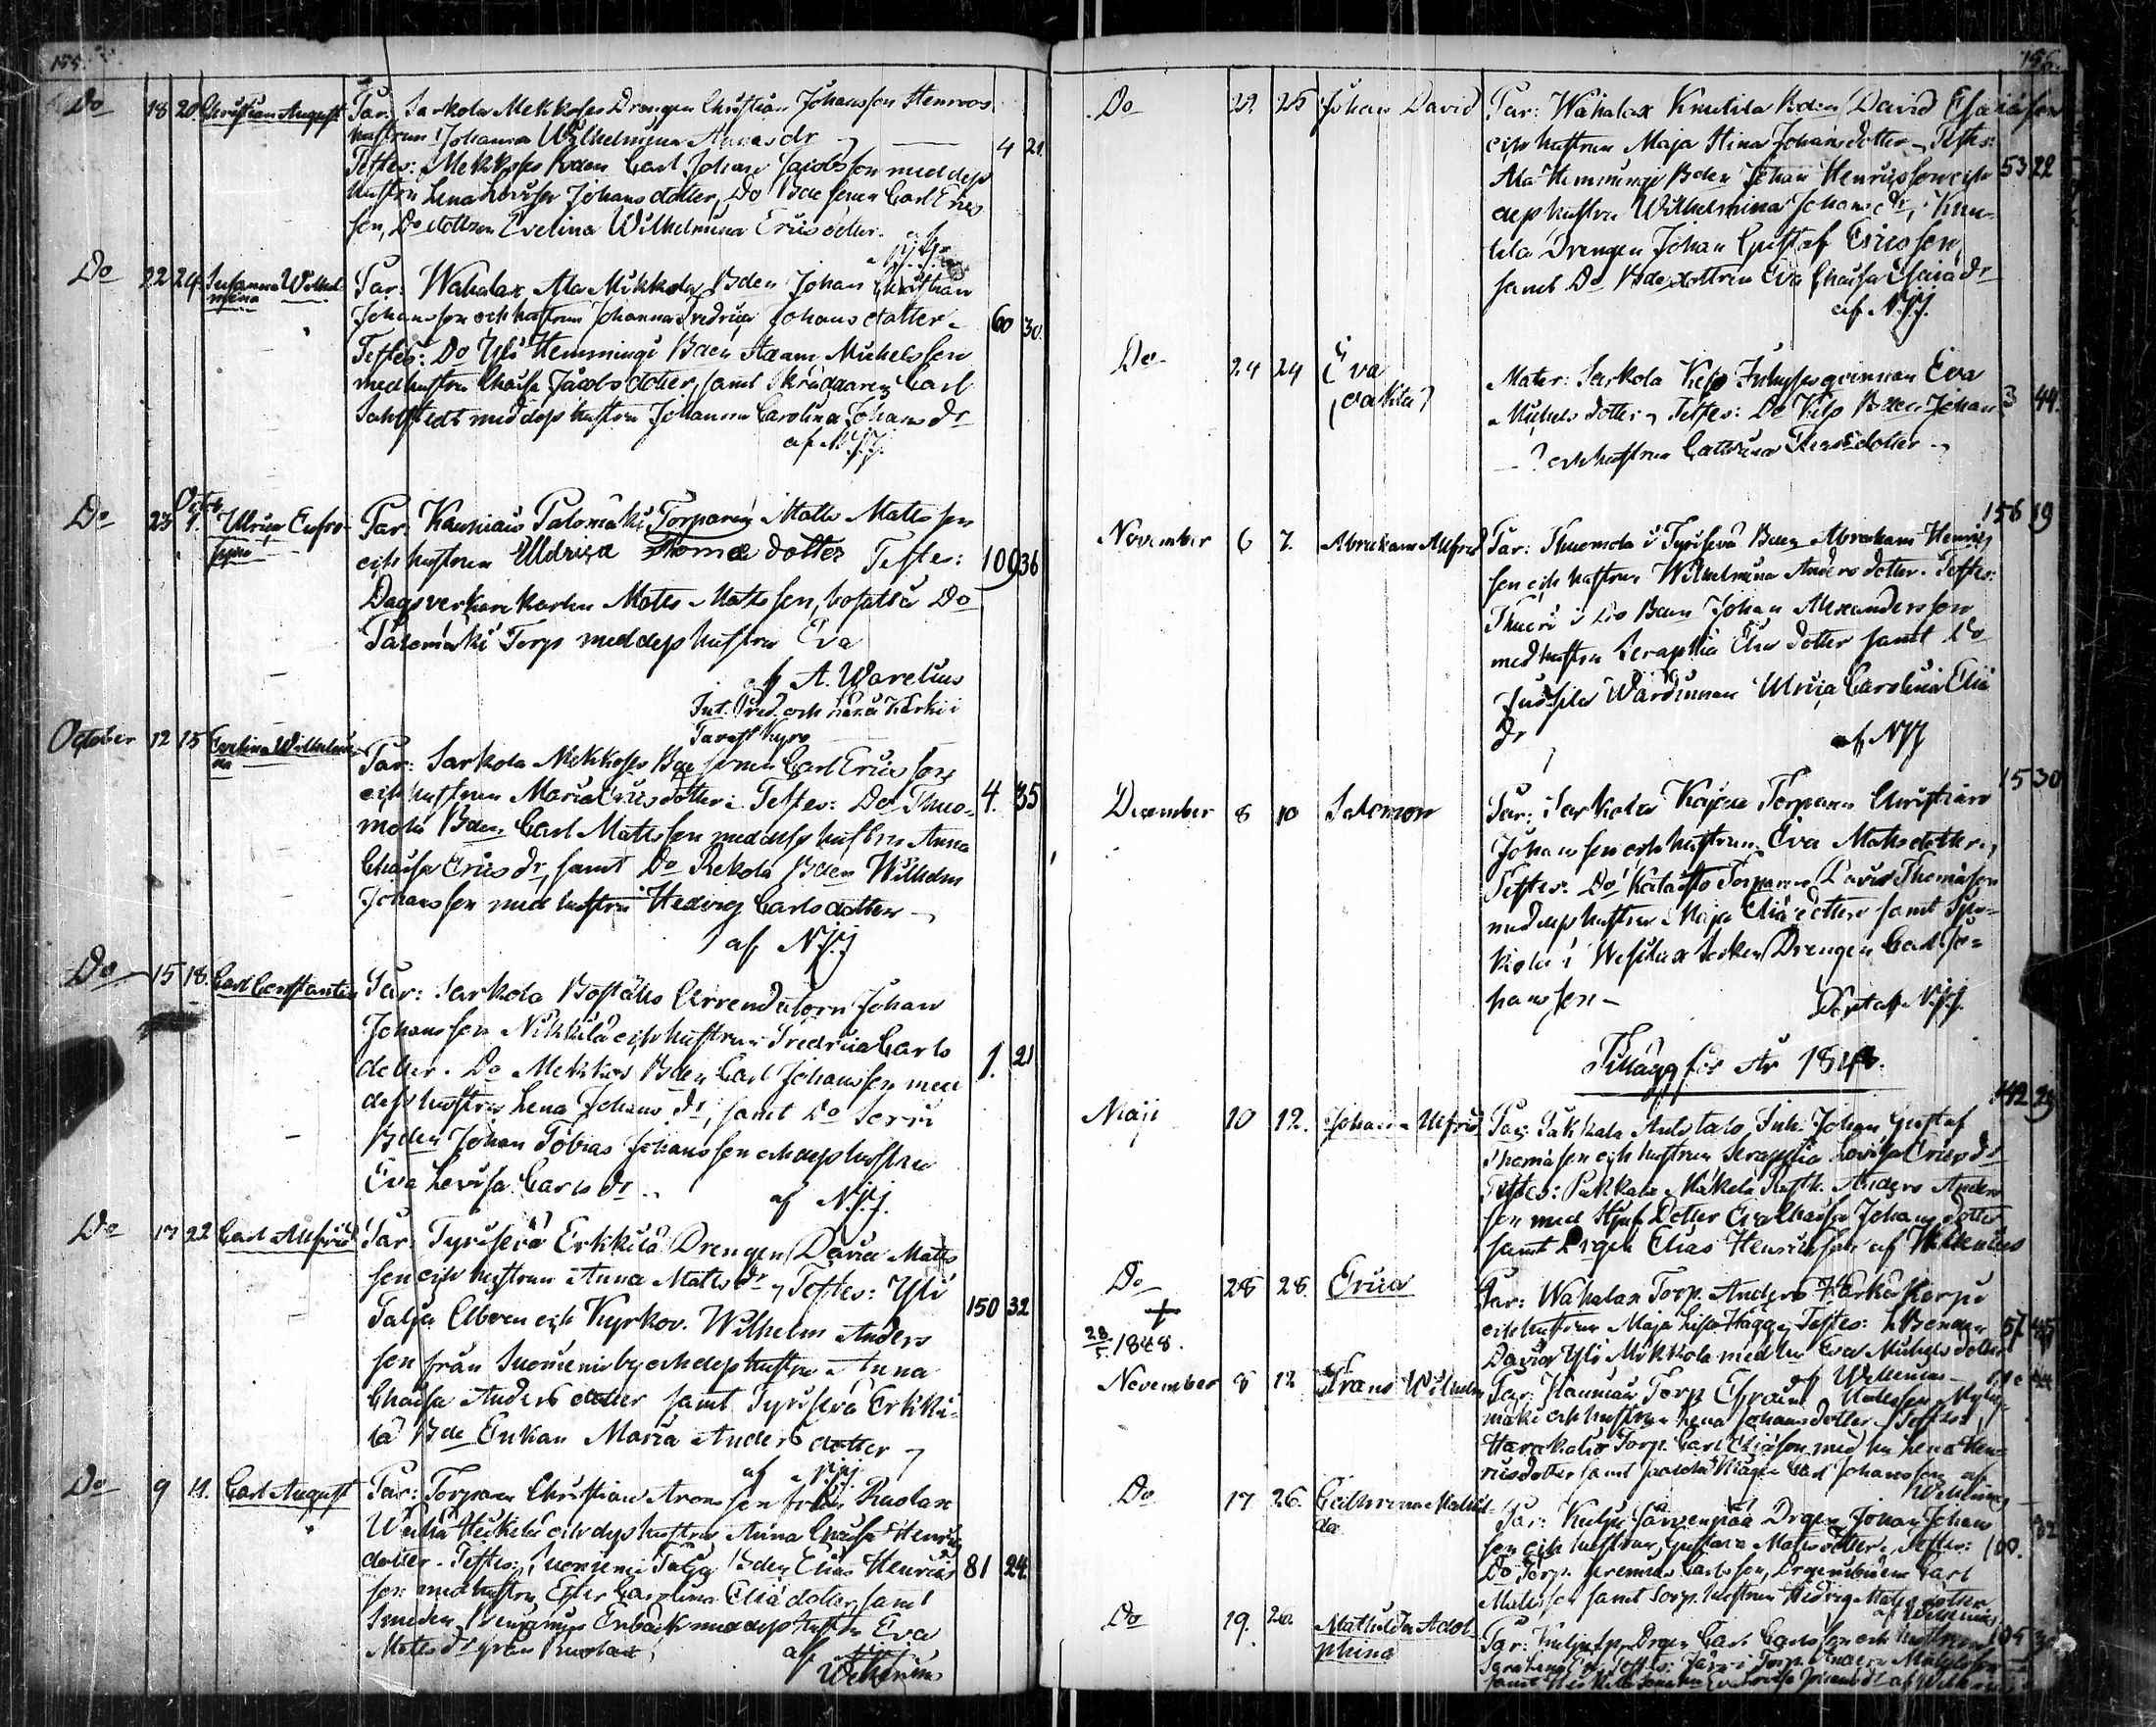 155.
Do 18 20 Christian August Par. Sarkola Mekkoss Drengen Christian Johansson Stenroos
hustrun Johanna Wilhelmina
4 21.
Testes: Mekkoss Bden Carl Johan Jacobsson med dess
hustru Lena Lovisa Johansdotter, Do Bdesonen Carl Erics
son, Do dottren Evelina Wilhelmina Ericsdotter.
Do 22 24 Susanna Wilhel
mina
Par: Wahalax Ala Mikkola Bden Johan Christian
Johansson och hustrun Johanna Fredrica Johansdotter.
60 30.
Testes: Do Yli Hemmingi Bden Adam Michelsson
med hustru Chaisa Jacobsdotter, samt Skräddaren Carl
Sahlstedt med dess hustru Johanna Carolina Johansdr
af N.J.J.
Do 23 Octob. 1. Ulrica Eufro-
syne
Par: Kauniais Palomäki Torparen Matts Mattsson
och hustrun Uldrica Thomæ dotter Testes: 109 36
Dagsverkarekarlen Matts Mattsson, bosatt å Do
Palomäki Torp med dess hustru Eva
af A. Warelius
October 12 15 Evelina Wilhelmi
na
Par: Sarkola Mekkoss Bdesonen Carl Ericsson
och hustrun Maria Ericsdotter. Testes: Do Thuo-
4. 35
mola Bden Carl Mattsson med dess hustru Anna
Chaisa Ericsdr, samt Do Rekola Bden Wilhelm
Johansson med hustru Hedvig Carlsdotter
af N.J.J
Do 15 18. Carl Constantin Par: Sarkola Boställs Arrendatorn Johan
Johansson Nikkilä och hustrun Fredrica Carls
dotter. Do Mekkos Bden Carl Johansson med 1. 21
dess hustru Lena Johansdr, samt Do Sorri
Bden Johan Tobias Johansson och dess hustru
Eva Lovisa Carlsdr. af N.J.J.
Do 17 22 Carl Alfrid Par: Tyrisevä Erkkilä Drengen David Matts
son och hustrun Anna Mattsdr, Testes: Yli
150 32
Talja Åboen och Kyrkov. Wilhelm Anders
son från Suomenis by och dess hustru Anna
Chaisa Anders dotter samt Tyrisevä Erkki-
lä Bde Enkan Maria Anders dotter
af N.J.J.
Do 9 11. Carl August Par: Torparen Christian Aronsson från Ruolax
och dess hustru Anna Chaisa Henrics
dotter. Testes: Suomenis Talja Bden Elias Henrics 81 24.
son med hustru Ester Carolina Eliædotter samt
Smeden Enbäck med dess hustru Eva
Mattsdr från Ruolax, af
Wellenius
156.
Do 22. 25 Johan David Par: Wahalax Knutila Bden David Esaiasson
och hustrun Maja Stina Johansdotter, Testes:
53 22
Ala Hemmingi Bden Johan Henricsson och
dess hustru Wilhelmina Johansdr, Knu-
tila Drengen Johan Gustaf Ericsson
samt Do Bdedottren Eva Chaisa Esaiædr
af N.J.J.
Do 24 24 Eva
(oäkta)
Mater: Sarkola Kess Inhysesqvinnan Eva
Michelsdotter, Testes: Do Kess Bden Johan 3 44.
? och hustrun Cathrina Thomædotter
156 19
November 6 7. Abraham Alfred Par: Thuomola i Tyrisevä Bden Abraham Henrics
son och hustrun Wilhelmina Andersdotter. Testes:
i Do Bden Johan Alexandersson
med hustru Seraphia Eliædotter samt Do
Jussila Wärdinnan Ulrica Carolina Eliæ
dr af NJJ
15 30
December 8 10 Salomon Par: Sarkola Torparen Christian
Johansson och hustrun Eva Mattsdotter,
Testes: Do Torparen David Thomæson
med dess hustru Maja Eliædotter samt
i Wesilax Socken Drengen Carl Jo-
hansson — Döpt af N.J.J.
Tillägg för År 1848.
142 29
Maji 10 12. Johanna Ulfrid Par: Pakkala Anttala Inh. Johan Gustaf
Thomæson och hustrun Seraphia Lovisa Ericsdr
Testes: Pakkala Mäkelä Rusth. Anders Anders
son med Styf Dotter Eva Chaisa Johansdotter
samt Drgen Elias Henricsson af Wellenius
Do 28 28. Erica Par: Wahalax Torp. Anders Harkokorpi
+
och hustrun Maja Lisa Häggq. Testes: Bonden 51 45
28/5 1848.
David Yli Mikkola med hu Eva Michelsdotter
af Wellenius
November 8 12 Frans Wilhelm Par: Kauniais Torp. Efraim Mattsson
mäki och hustrun Lena Johansdotter. Testes:
Torp. Carl Eliæson med hu Lena Hen-
ricsdotter samt Carl Johansson af
Wellenius
Do 17 26. Cathrina Mathil-
da
Par: Kulju Sarvenpää Drgen Johan Johans
son och hustrun Gustava Mattsdotter. Testes: 100. 32
Do Torp. Jeremias Carlsson, Carl
Mattsson samt Torp. hustrun Hedvig Mattsdotter
af Wellenius
Do 19. 26. Mathilda Adol-
phina
Par: Drgen Carl Carlsson och hustrun 105
Testes: Torp. Anders
samt af Wellenius